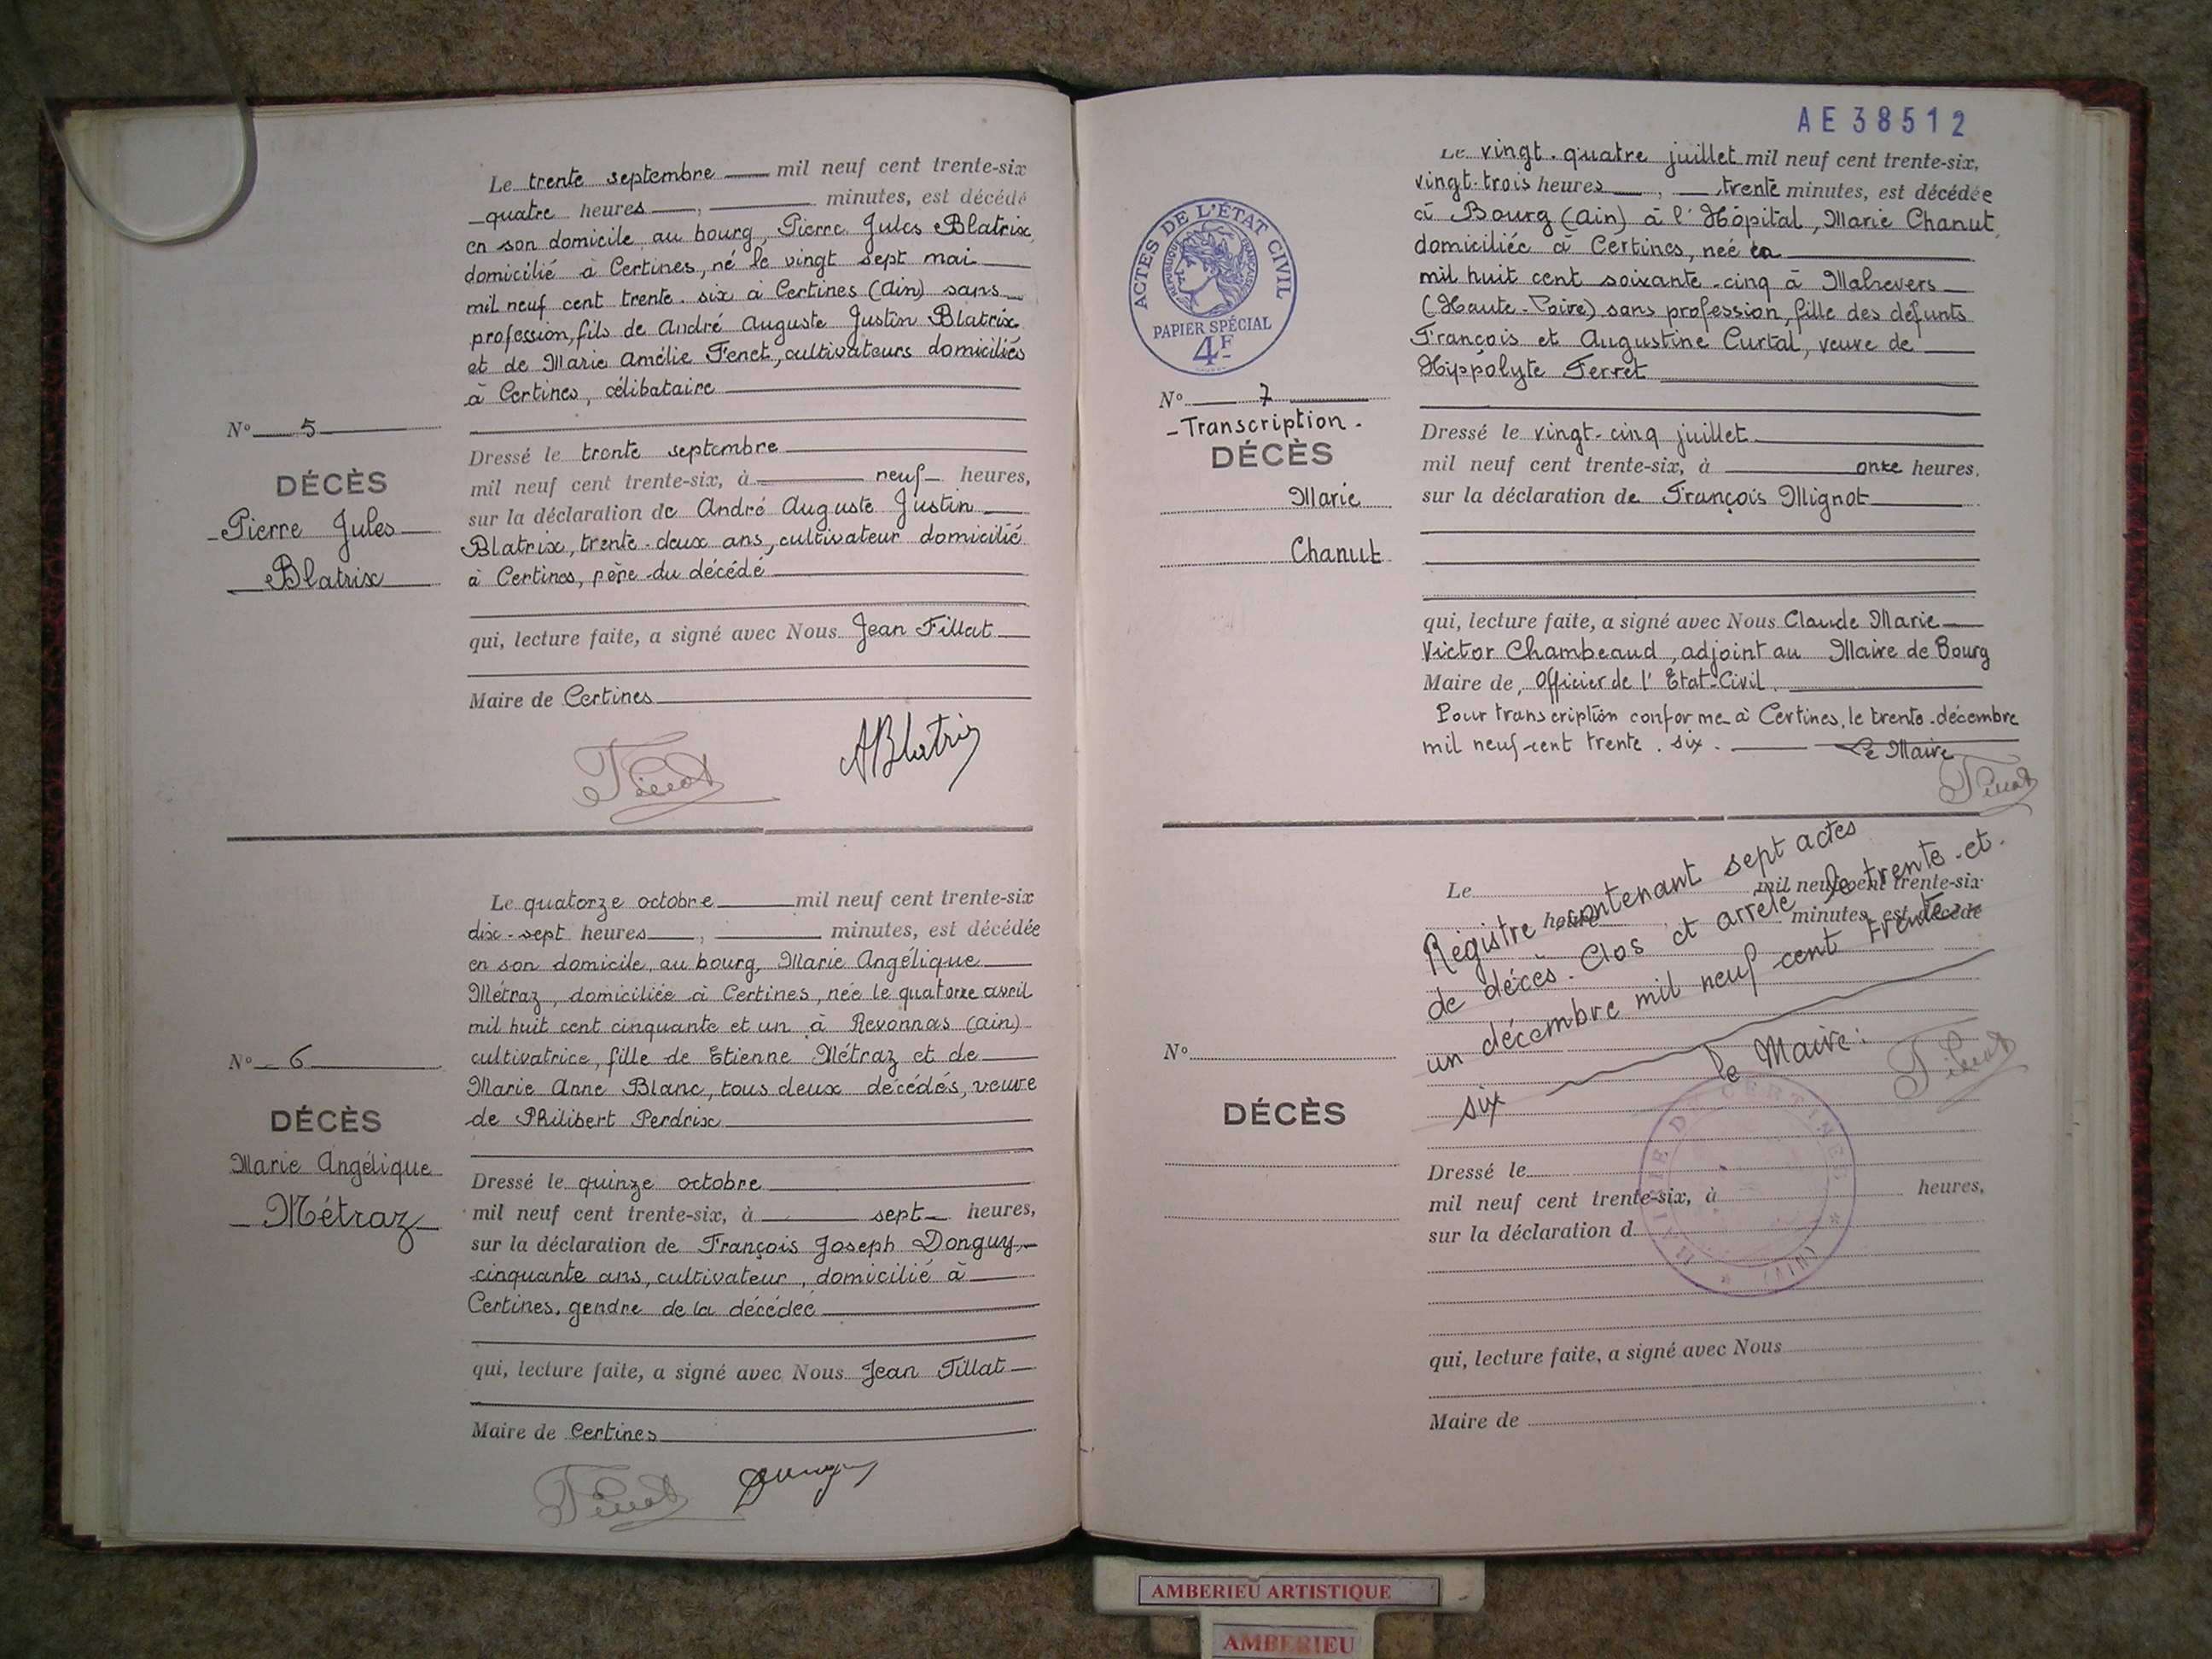 Le trente septembre mil neuf cent trente-six
quatre heures, minutes, est décédé
en son domicile au bourg, Pierre Jules Blatrix,
domicilié à Certines, né le vingt sept mai
mil neuf cent trente-six à Certines (Ain) sans
profession, fils de André Auguste Justin Blatrix
et de Marie Amélie Fenet, cultivateurs domiciliés
à Certines, célibataire
N° 5
DÉCÈS
Pierre Jules
Blatrix
Dressé le trente septembre
mil neuf cent trente-six, à neuf heures,
sur la déclaration de André Auguste Justin
Blatrix, trente-deux ans, cultivateur domicilié
à Certines, père du décédé
qui, lecture faite, a signé avec Nous Jean Tillat
Maire de Certines
Tillat ABlatrix
Le quatorze octobre mil neuf cent trente-six
dix-sept heures, minutes, est décédée
en son domicile, au bourg, Marie Angélique
Métraz, domiciliée à Certines, née le quatorze avril
mil huit cent cinquante et un à Revonnas (Ain)
cultivatrice, fille de Etienne Métraz et de
Marie Anne Blanc, tous deux décédés, veuve
de Philibert Perdrix
N° 6
DÉCÈS
Marie Angélique
Métraz
Dressé le quinze octobre
mil neuf cent trente-six, à sept heures,
sur la déclaration de François Joseph Donguy,
cinquante ans, cultivateur, domicilié à
Certines, gendre de la décédée
qui, lecture faite, a signé avec Nous Jean Tillat
Maire de Certines
Tillat Donguy
AE38512
ACTES DE L'ÉTAT CIVIL
RÉPUBLIQUE FRANÇAISE
PAPIER SPÉCIAL
4F
Le vingt-quatre juillet mil neuf cent trente-six,
vingt-trois heures, trente minutes, est décédée
à Bourg (Ain) à l'Hôpital, Marie Chanut,
domiciliée à Certines, née en
mil huit cent soixante-cinq à Malrevers
(Haute-Loire) sans profession, fille des défunts
François et Augustine Curtal, veuve de
Hippolyte Ferret
N° 7
-Transcription.
DÉCÈS
Marie
Chanut
Dressé le vingt-cinq juillet
mil neuf cent trente-six, à onze heures,
sur la déclaration de François Mignot
qui, lecture faite, a signé avec Nous Claude Marie
Victor Chambeaud, adjoint au Maire de Bourg
Maire de, Officier de l'Etat-Civil.
Pour transcription conforme à Certines, le trente-décembre
mil neuf-cent trente-six. Le Maire
Tillat
Le mil neuf cent trente-six
heures minutes, est décédé
Régistre contenant sept actes
de décès. Clos et arrêté le trente-et-
un décembre mil neuf-cent trente-
six le Maire:
Tillat
MAIRIE DE CERTINES * (AIN) *
N°
DÉCÈS
Dressé le
mil neuf cent trente-six, à heures,
sur la déclaration d
qui, lecture faite, a signé avec Nous
Maire de
AMBERIEU ARTISTIQUE
AMBERIEU